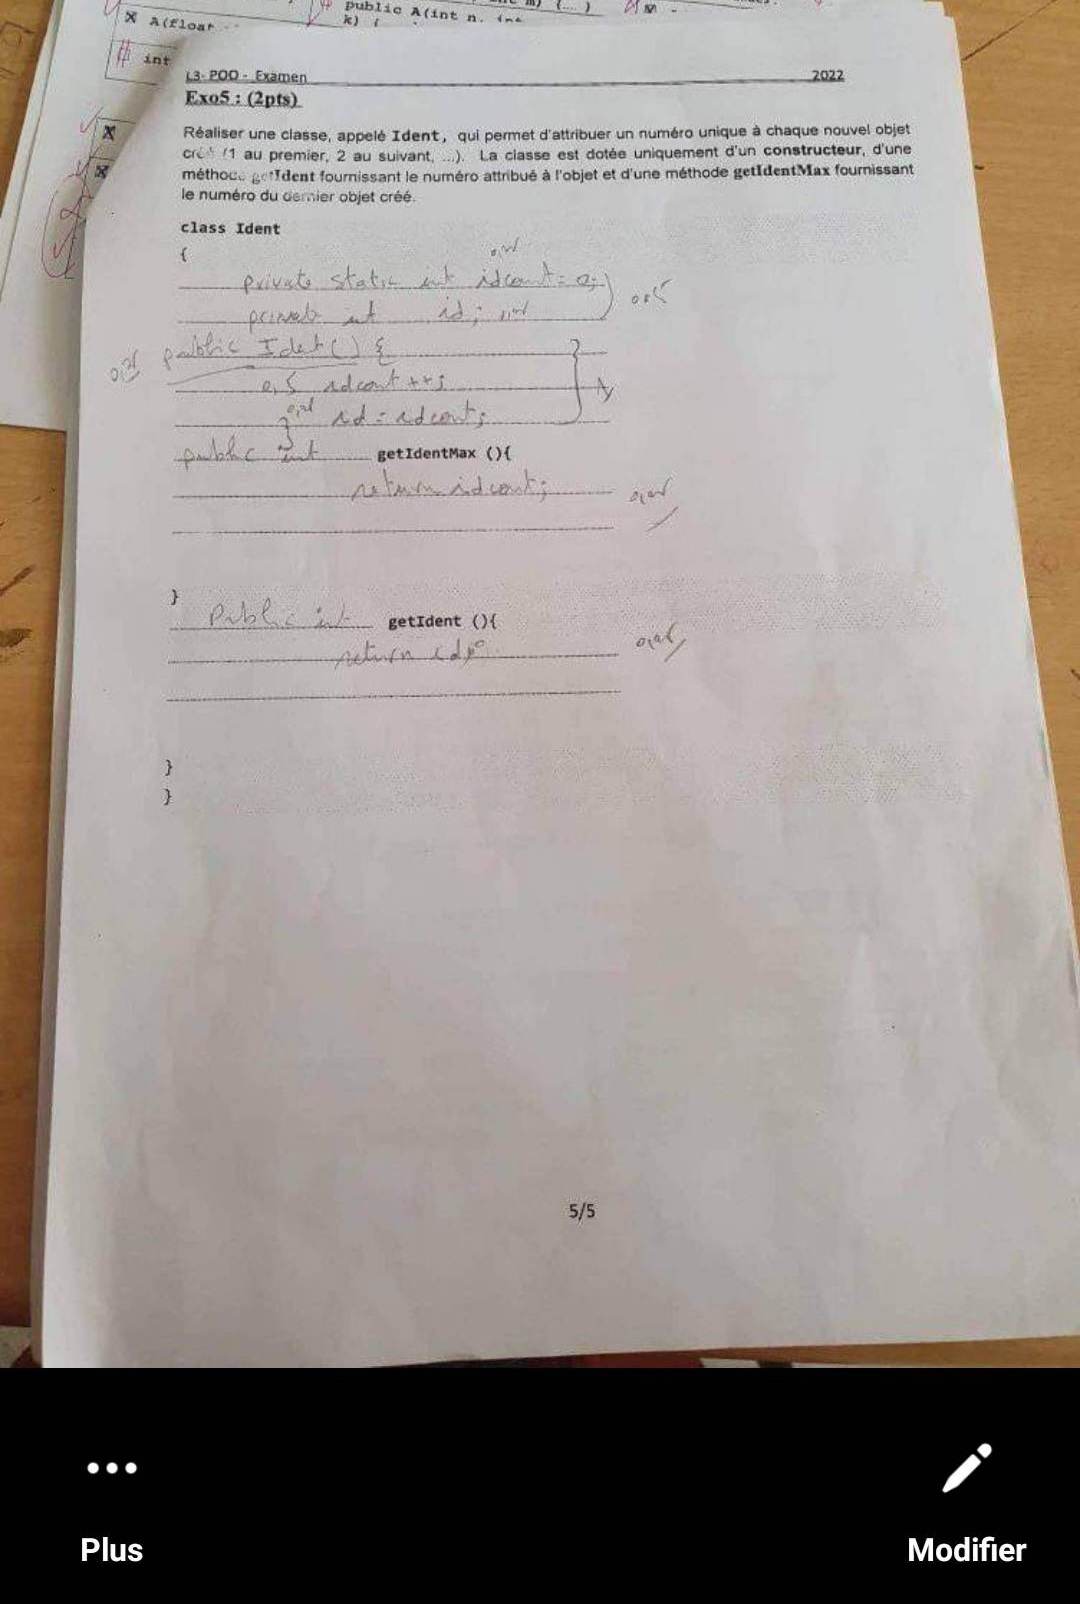 X A(float
public A(int n, int
k) {
int
X
X
L3- POO - Examen 2022
Exo5 : (2pts)
Réaliser une classe, appelé Ident, qui permet d'attribuer un numéro unique à chaque nouvel objet
créé (1 au premier, 2 au suivant, ...). La classe est dotée uniquement d'un constructeur, d'une
méthode getIdent fournissant le numéro attribué à l'objet et d'une méthode getIdentMax fournissant
le numéro du dernier objet créé.
class Ident
{
private static int idcont = 0;
private int id;
public Ident() {
0,5 idcont ++;
id = idcont;
}
public int getIdentMax (){
return idcont;
}
Public int getIdent (){
return id;
}
}
5/5
Plus Modifier